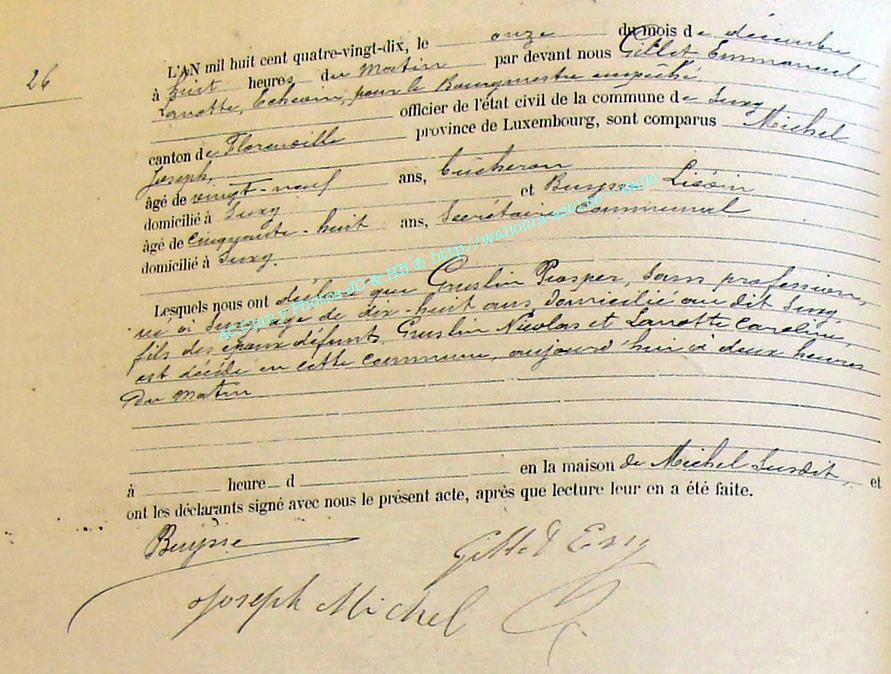 26
L'AN mil huit cent quatre-vingt-dix, le onze du mois de décembre
à huit heures du matin par devant nous Gillet Emmanuel
Lanotte, Echevin, pour le Bourgmestre empêché,
officier de l'état civil de la commune de Suxy
canton de Florenville province de Luxembourg, sont comparus Michel
Joseph,
âgé de vingt-neuf ans, bûcheron
domicilié à Suxy et Buysse
âgé de cinquante-huit ans, Secrétaire communal
domicilié à Suxy.
Lesquels nous ont déclaré que Guslin Prosper, sans profession,
né à Suxy, âgé de dix-huit ans domicilié au dit Suxy,
fils des époux défunts, Guslin Nicolas et Lanotte Caroline,
est décédé en cette commune, aujourd'hui à deux heures
du matin
à heure d en la maison de Michel Susdit, et
ont les déclarants signé avec nous le présent acte, après que lecture leur en a été faite.
Buysse
Gillet
Joseph Michel
ACGhimny Photos JC & HB © http://wallonia-asbl.be